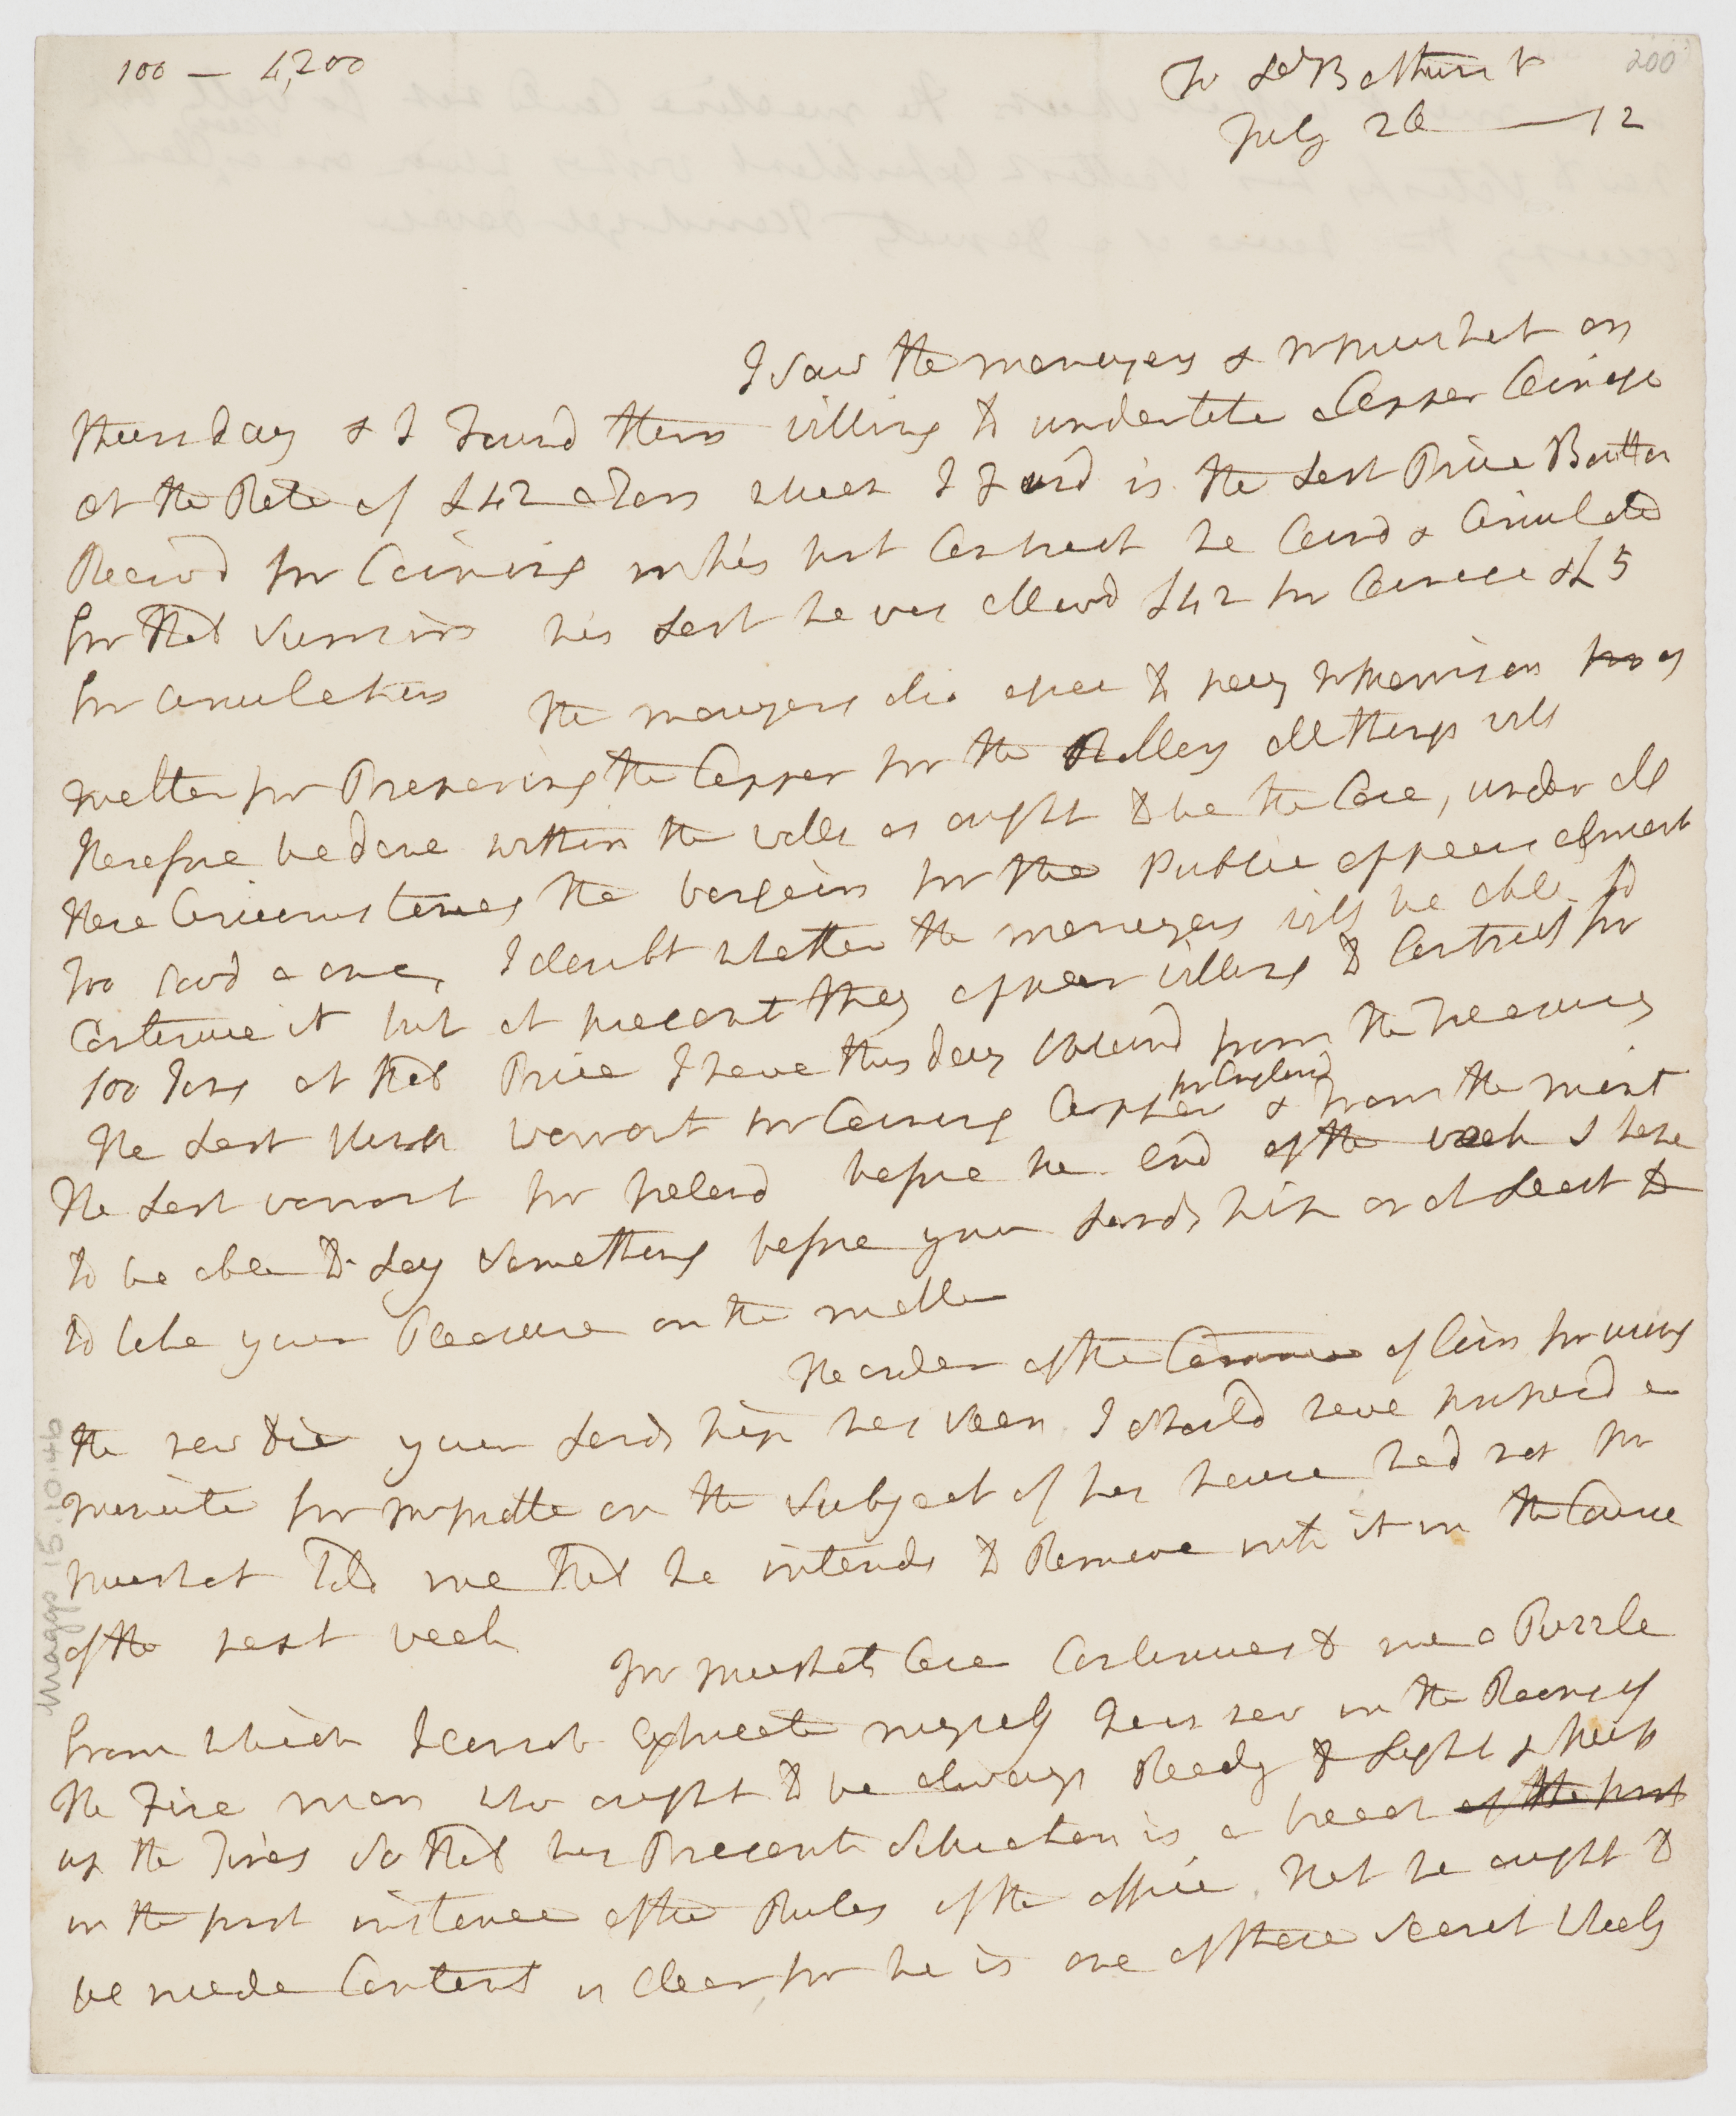 100 — 4,200
200
To Ld Bathurst
July 26 — 12
I saw the moneyers & Mr Mushet on
Thursday & I Found them willing to undertake a Copper Coinage
at the Rate of £42 a Ton which I Find is the Last Price Bolton
Receivd for Coining in his first Contract he Coind & Circulated
for that Sum in his Last he was allowd £42 for Coinage & £5
for Circulation The moneyers also agree to pay Mr Morrison
melter for Preparing the Copper for the Rollers all things will
therefore be done within the walls as ought to be the Case, under all
these Circumstances the bargain for the Public appears almost
too Good a one, I doubt whether the moneyers will be able to
Continue it but at present they appear willing to Contract for
100 Tons at that Price I have this day obtaind from the Treasury
for England
The Last warrant for Coining Copper & from the mint
the Last warrant for Ireland before the End of the week I hope
to be able to Lay Something before your Lordship or at Least to
to take your Pleasure on the matter
The order of the Committee of Coin for using
the new die your Lordship has seen I should have proposed a
minute for Mr on the Subject of his house had not Mr
Mushet Told me that he intends to Remove into it in the Course
of the next week
Mr Mushets Case Continues to me a Puzzle
from which I cannot Extricate myself he is now in the Rooms of
the Fire man who ought to be always Ready to Light & keep
up the Fires So that his Present Situation is a breach of the first
in the first instance of the Rules of the office. that he ought to
be made Content is Clear, for he is one of those Secret Wheels
Maggs 15.10.46